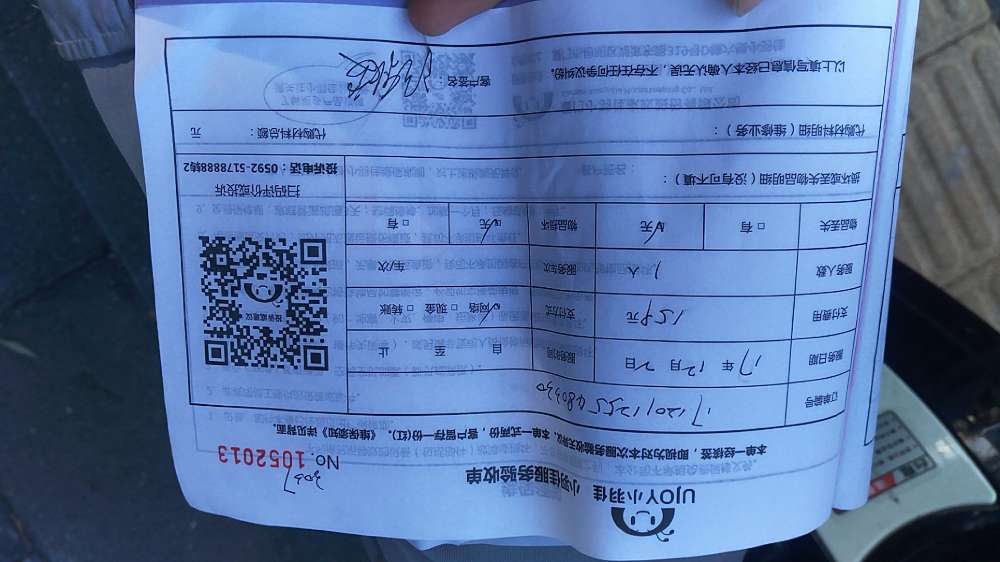 UJOY小羽佳 小羽佳服务验收单
3007
NO. 1052013
本单一经核签，即视为对本次服务验收无异议。本单一式两份，客户留存一份(红)。《维保须知》详见背面。
订单编号
服务日期 17年12月2日 服务时间 自 至 止
支付费用 159元 支付方式 ☑网络 □现金 □转账
服务人数 1人 服务车次 车/次
物品丢失 □有 ☑无 物品损坏 ☑无 □有
损坏或丢失物品明细（没有可不填）：
投诉或建议
扫码评价或投诉
投诉电话：0592-5178888转2
代购材料明细（维修业务）： 代购材料总额： 元
以上填写信息已经本人确认无误，不存在任何争议纠纷。
客户签名：